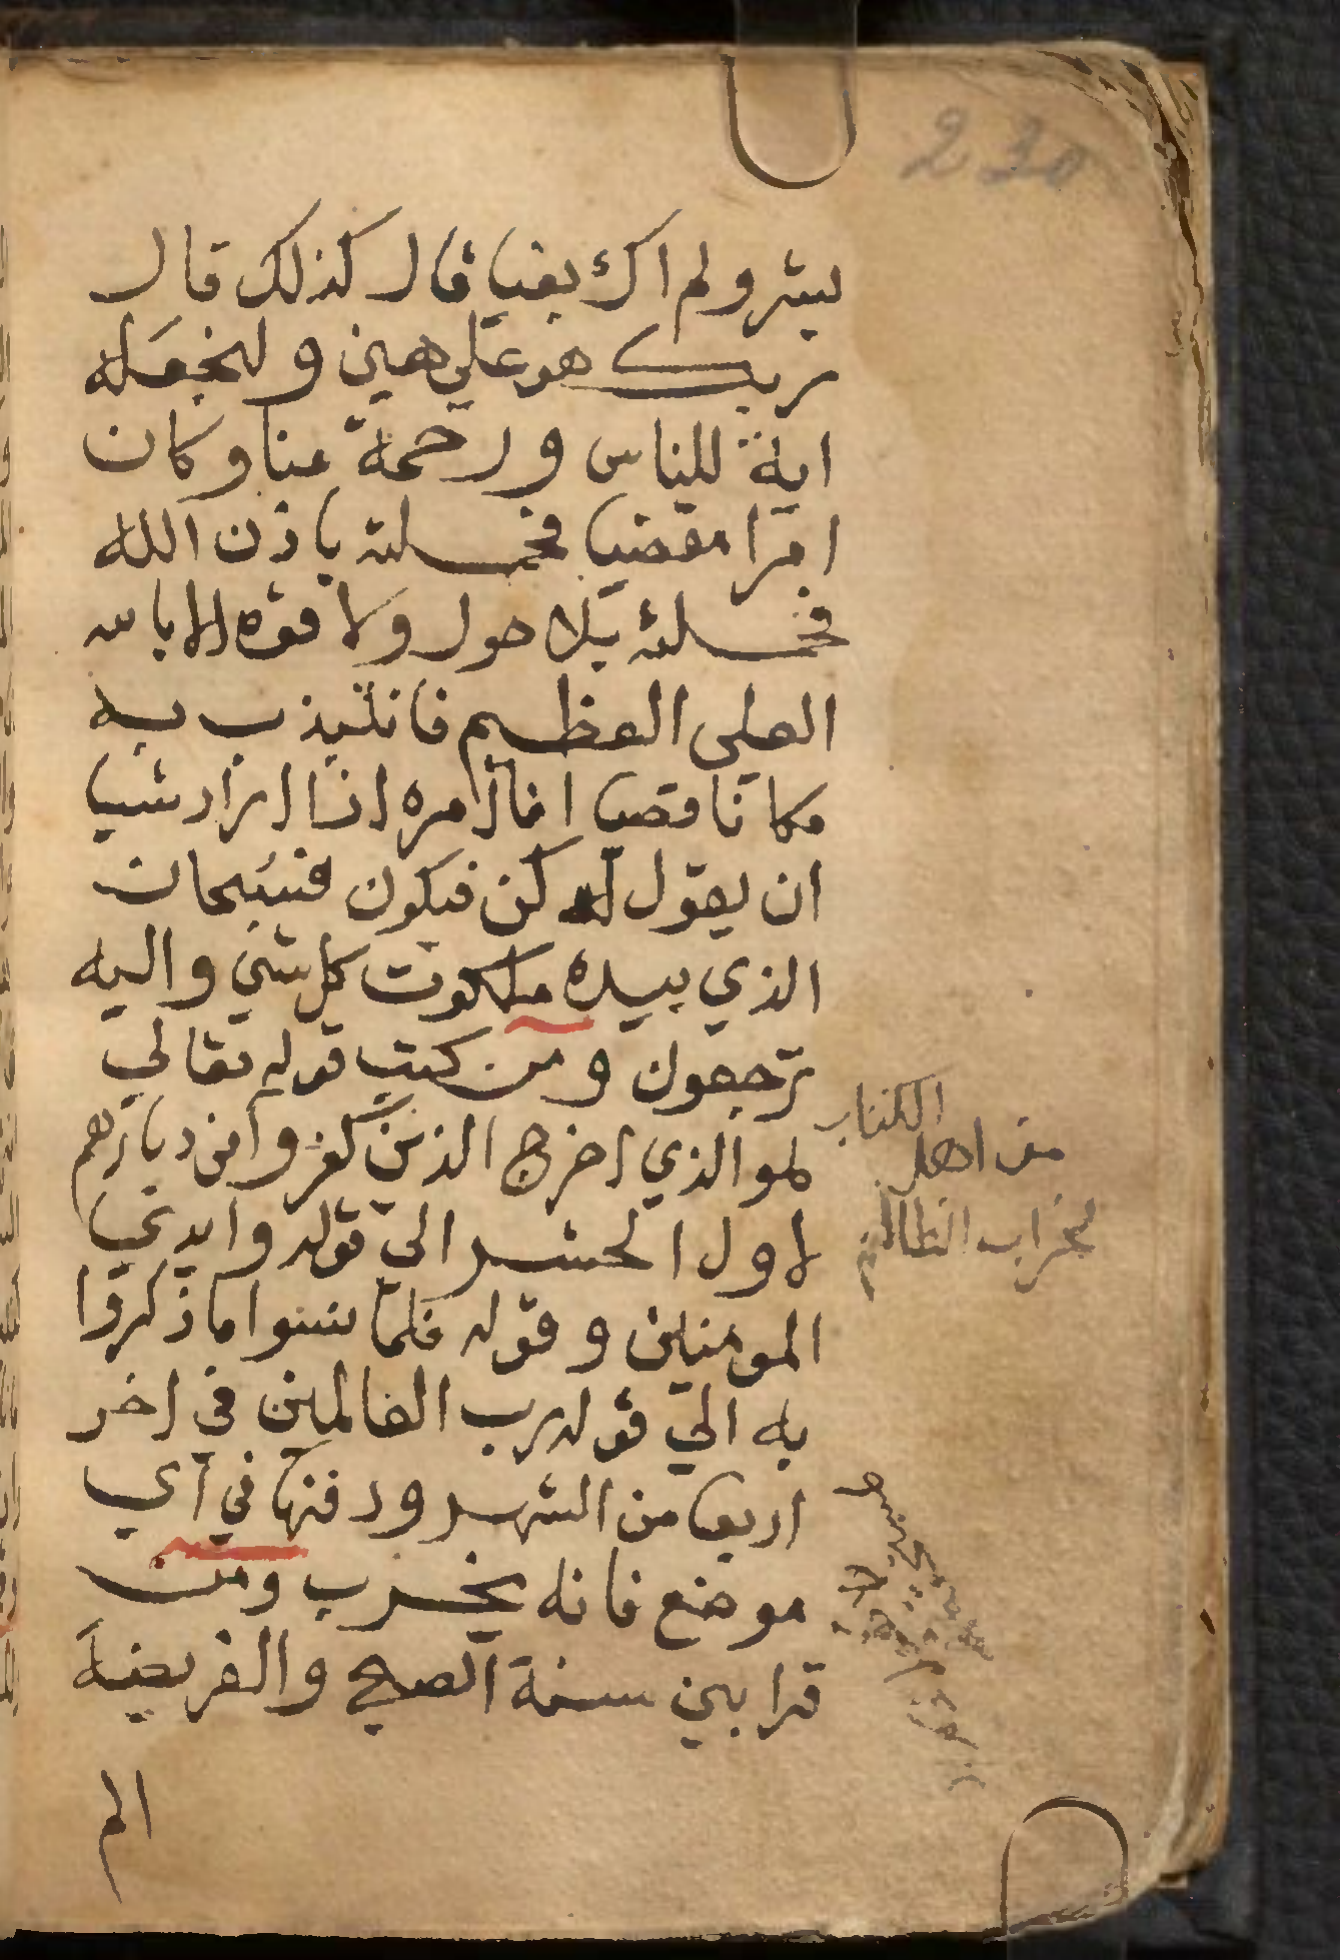 230
بشر ولم اك بغيا قال كذلك قال
ربك هو علي هين ولنجعله
اية للناس ورحمة منا وكان
امرا مقضيا فحملته باذن الله
فحملته بلا حول ولا قوه الا بالله
العلي العظيم فانتبذت به
مكانا قصيا انما امره اذا اراد شيا
ان يقول له كن فيكون فسبحان
الذي بيده ملكوت كل شي واليه
ترجعون ومن كتب قوله تعالي
هو الذي اخرج الذين كفروا من ديارهم
لاول الحشر الي قوله وايدي
المومنين وقوله فلما نسوا ما ذكروا
به الي قوله رب العالمين في اخر
اربعا من الشهر ودفنها في اي
موضع فانه يخرب ومن
قرا بين سنة الصبح والفريضة
الم
من اهل الكتاب
لخراب الظالم